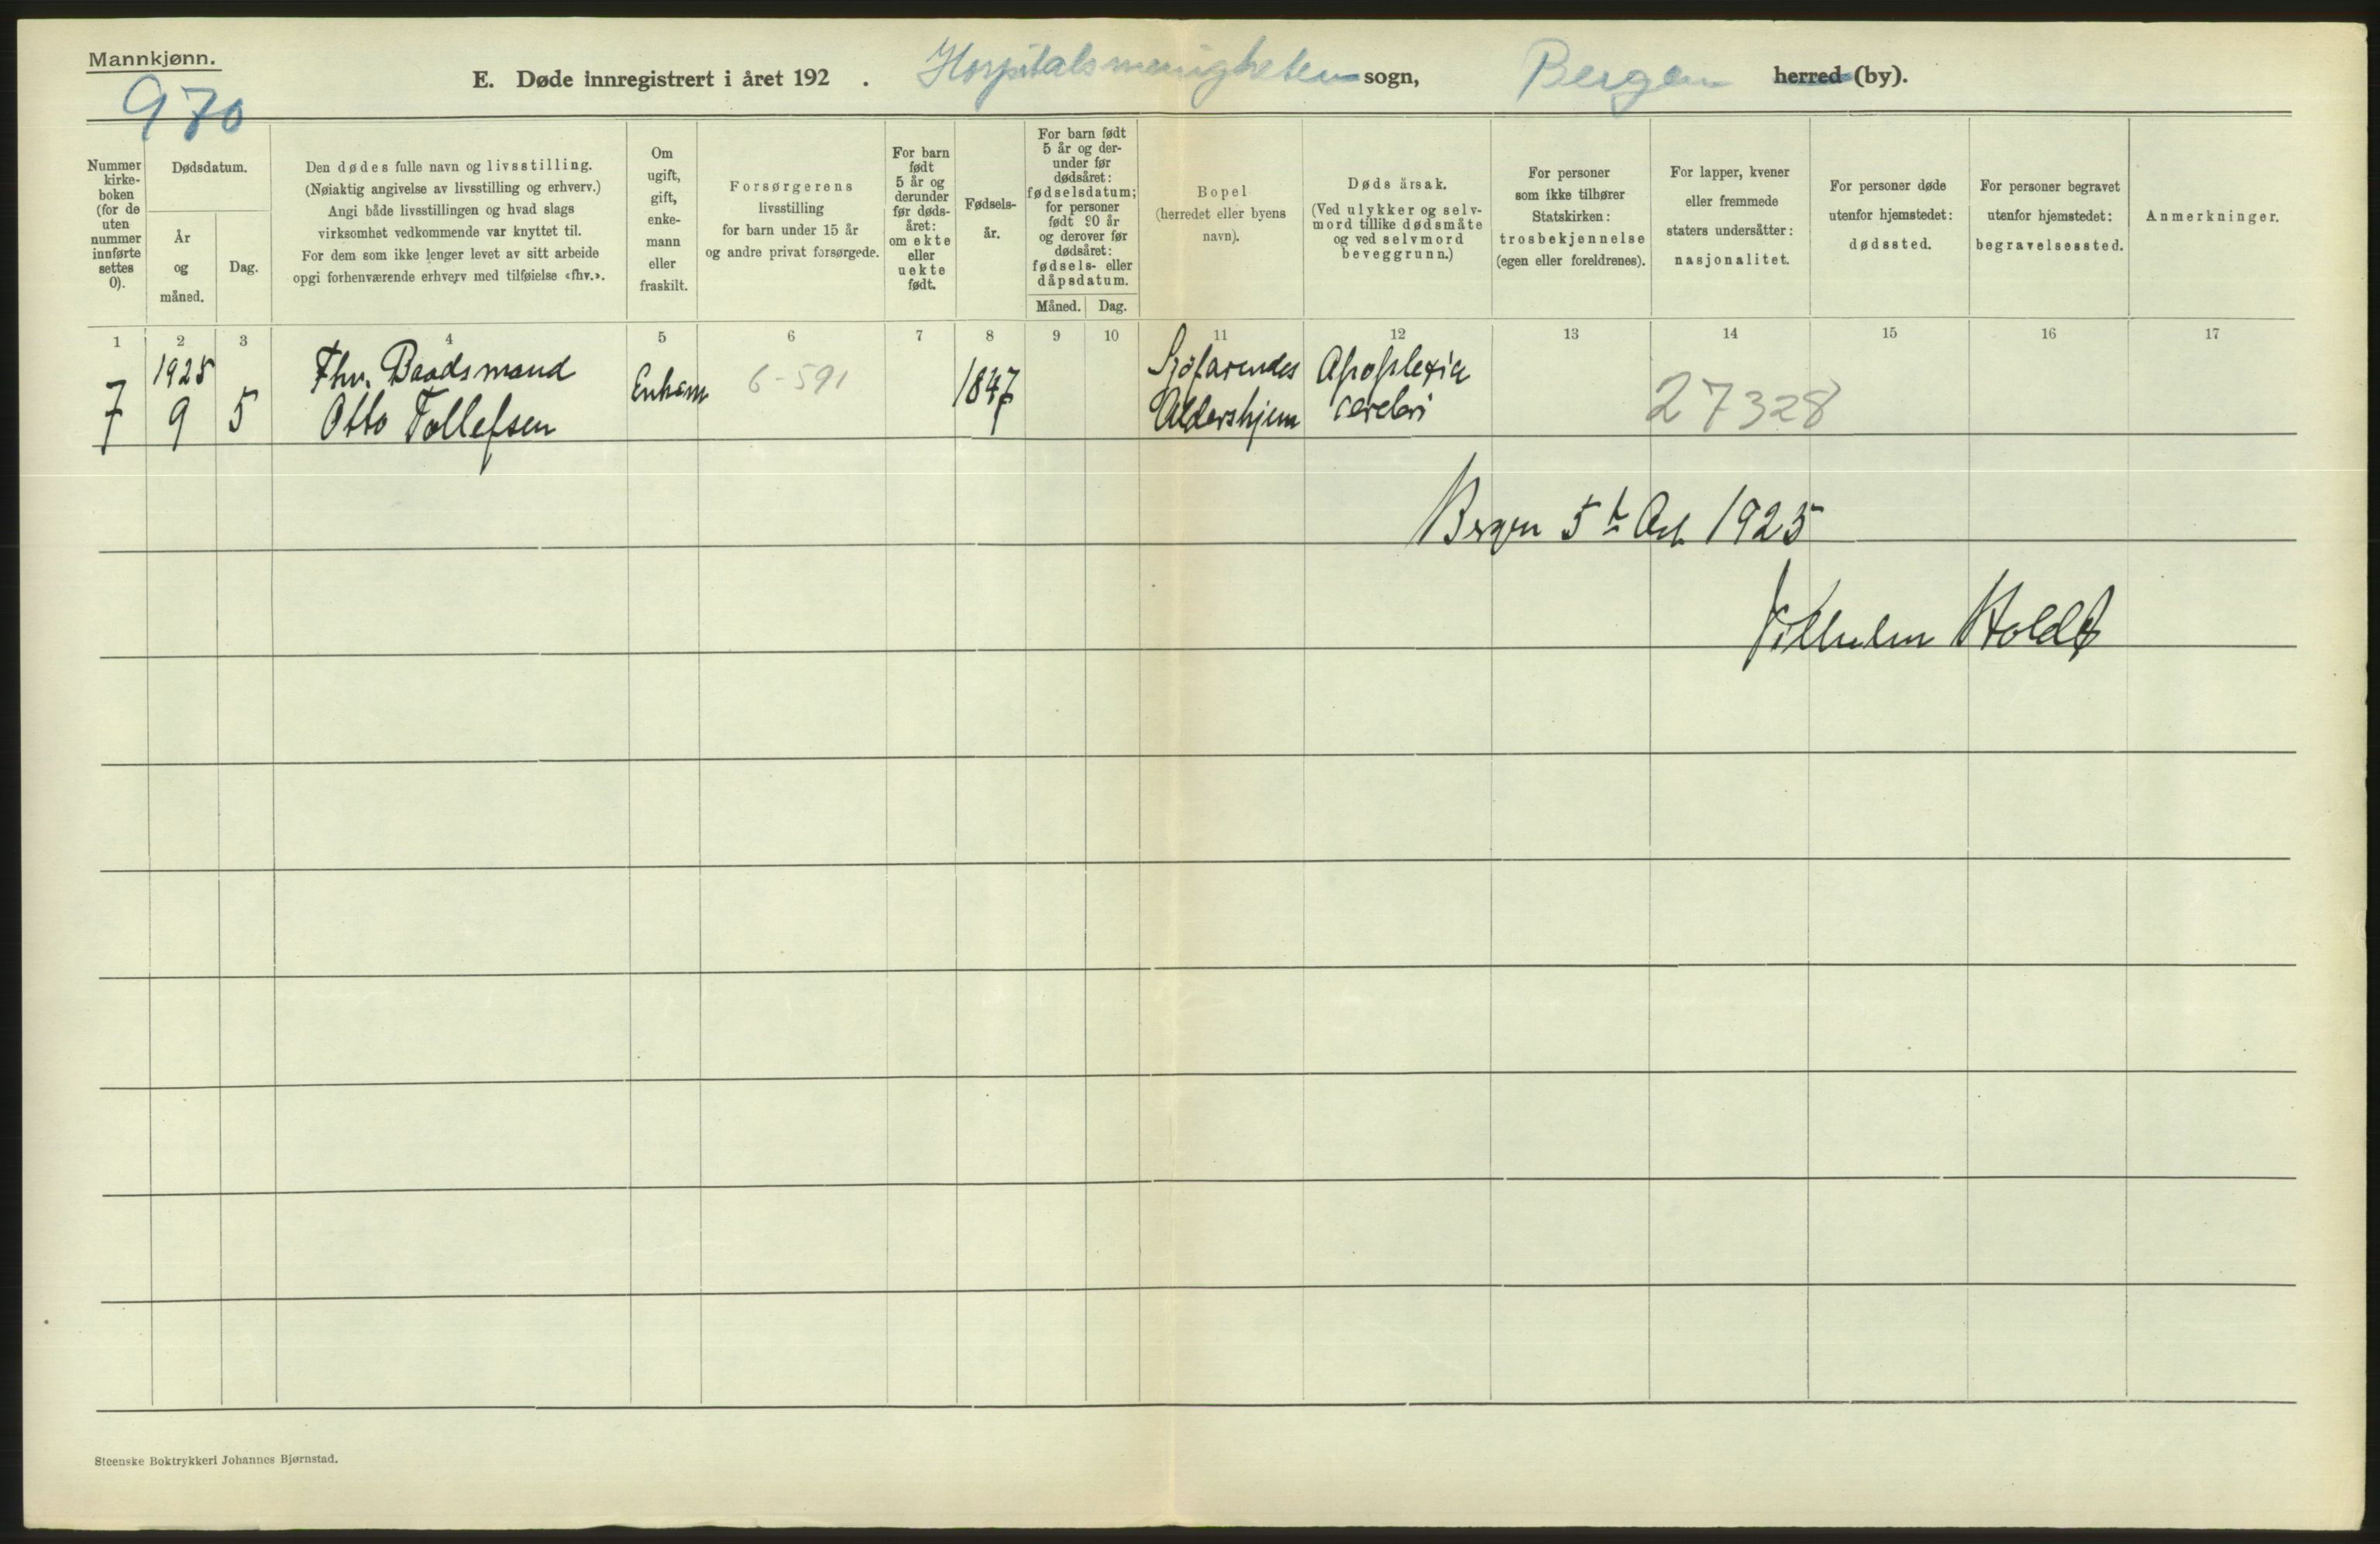 Mannkjønn.
970
E. Døde innregistrert i året 192 . Hospitalsmenigheten sogn, Bergen herred (by).
Nummer
kirke-
boken
(for de
uten
nummer
innførte
settes
0).
Dødsdatum.
År
og
måned.
Dag.
Den dødes fulle navn og livsstilling.
(Nøiaktig angivelse av livsstilling og erhverv.)
Angi både livsstillingen og hvad slags
virksomhet vedkommende var knyttet til.
For dem som ikke lenger levet av sitt arbeide
opgi forhenværende erhverv med tilføielse «fhv.».
Om
ugift,
gift,
enke-
mann
eller
fraskilt.
Forsørgerens
livsstilling
for barn under 15 år
og andre privat forsørgede.
For barn
født
5 år og
derunder
før døds-
året:
om ekte
eller
uekte
født.
Fødsels-
år.
For barn født
5 år og der-
under før
dødsåret:
fødselsdatum;
for personer
født 90 år
og derover før
dødsåret:
fødsels- eller
dåpsdatum.
Måned. Dag.
Bopel
(herredet eller byens
navn).
Dødsårsak.
(Ved ulykker og selv-
mord tillike dødsmåte
og ved selvmord
beveggrunn.)
For personer
som ikke tilhører
Statskirken:
trosbekjennelse
(egen eller foreldrenes).
For lapper, kvener
eller fremmede
staters undersåtter:
nasjonalitet.
For personer døde
utenfor hjemstedet:
dødssted.
For personer begravet
utenfor hjemstedet:
begravelsessted.
Anmerkninger.
1 2 3 4 5 6 7 8 9 10 11 12 13 14 15 16 17
1925 Fhv. Baadsmand Sjøfarendes Apoplexia
7 9 5 Otto Tollefsen Enkem 6-591 1847 Aldershjem cerebri 27328
Bergen 5t Oct 1925
Vilhelm Holdt
Steenske Boktrykkeri Johannes Bjørnstad.